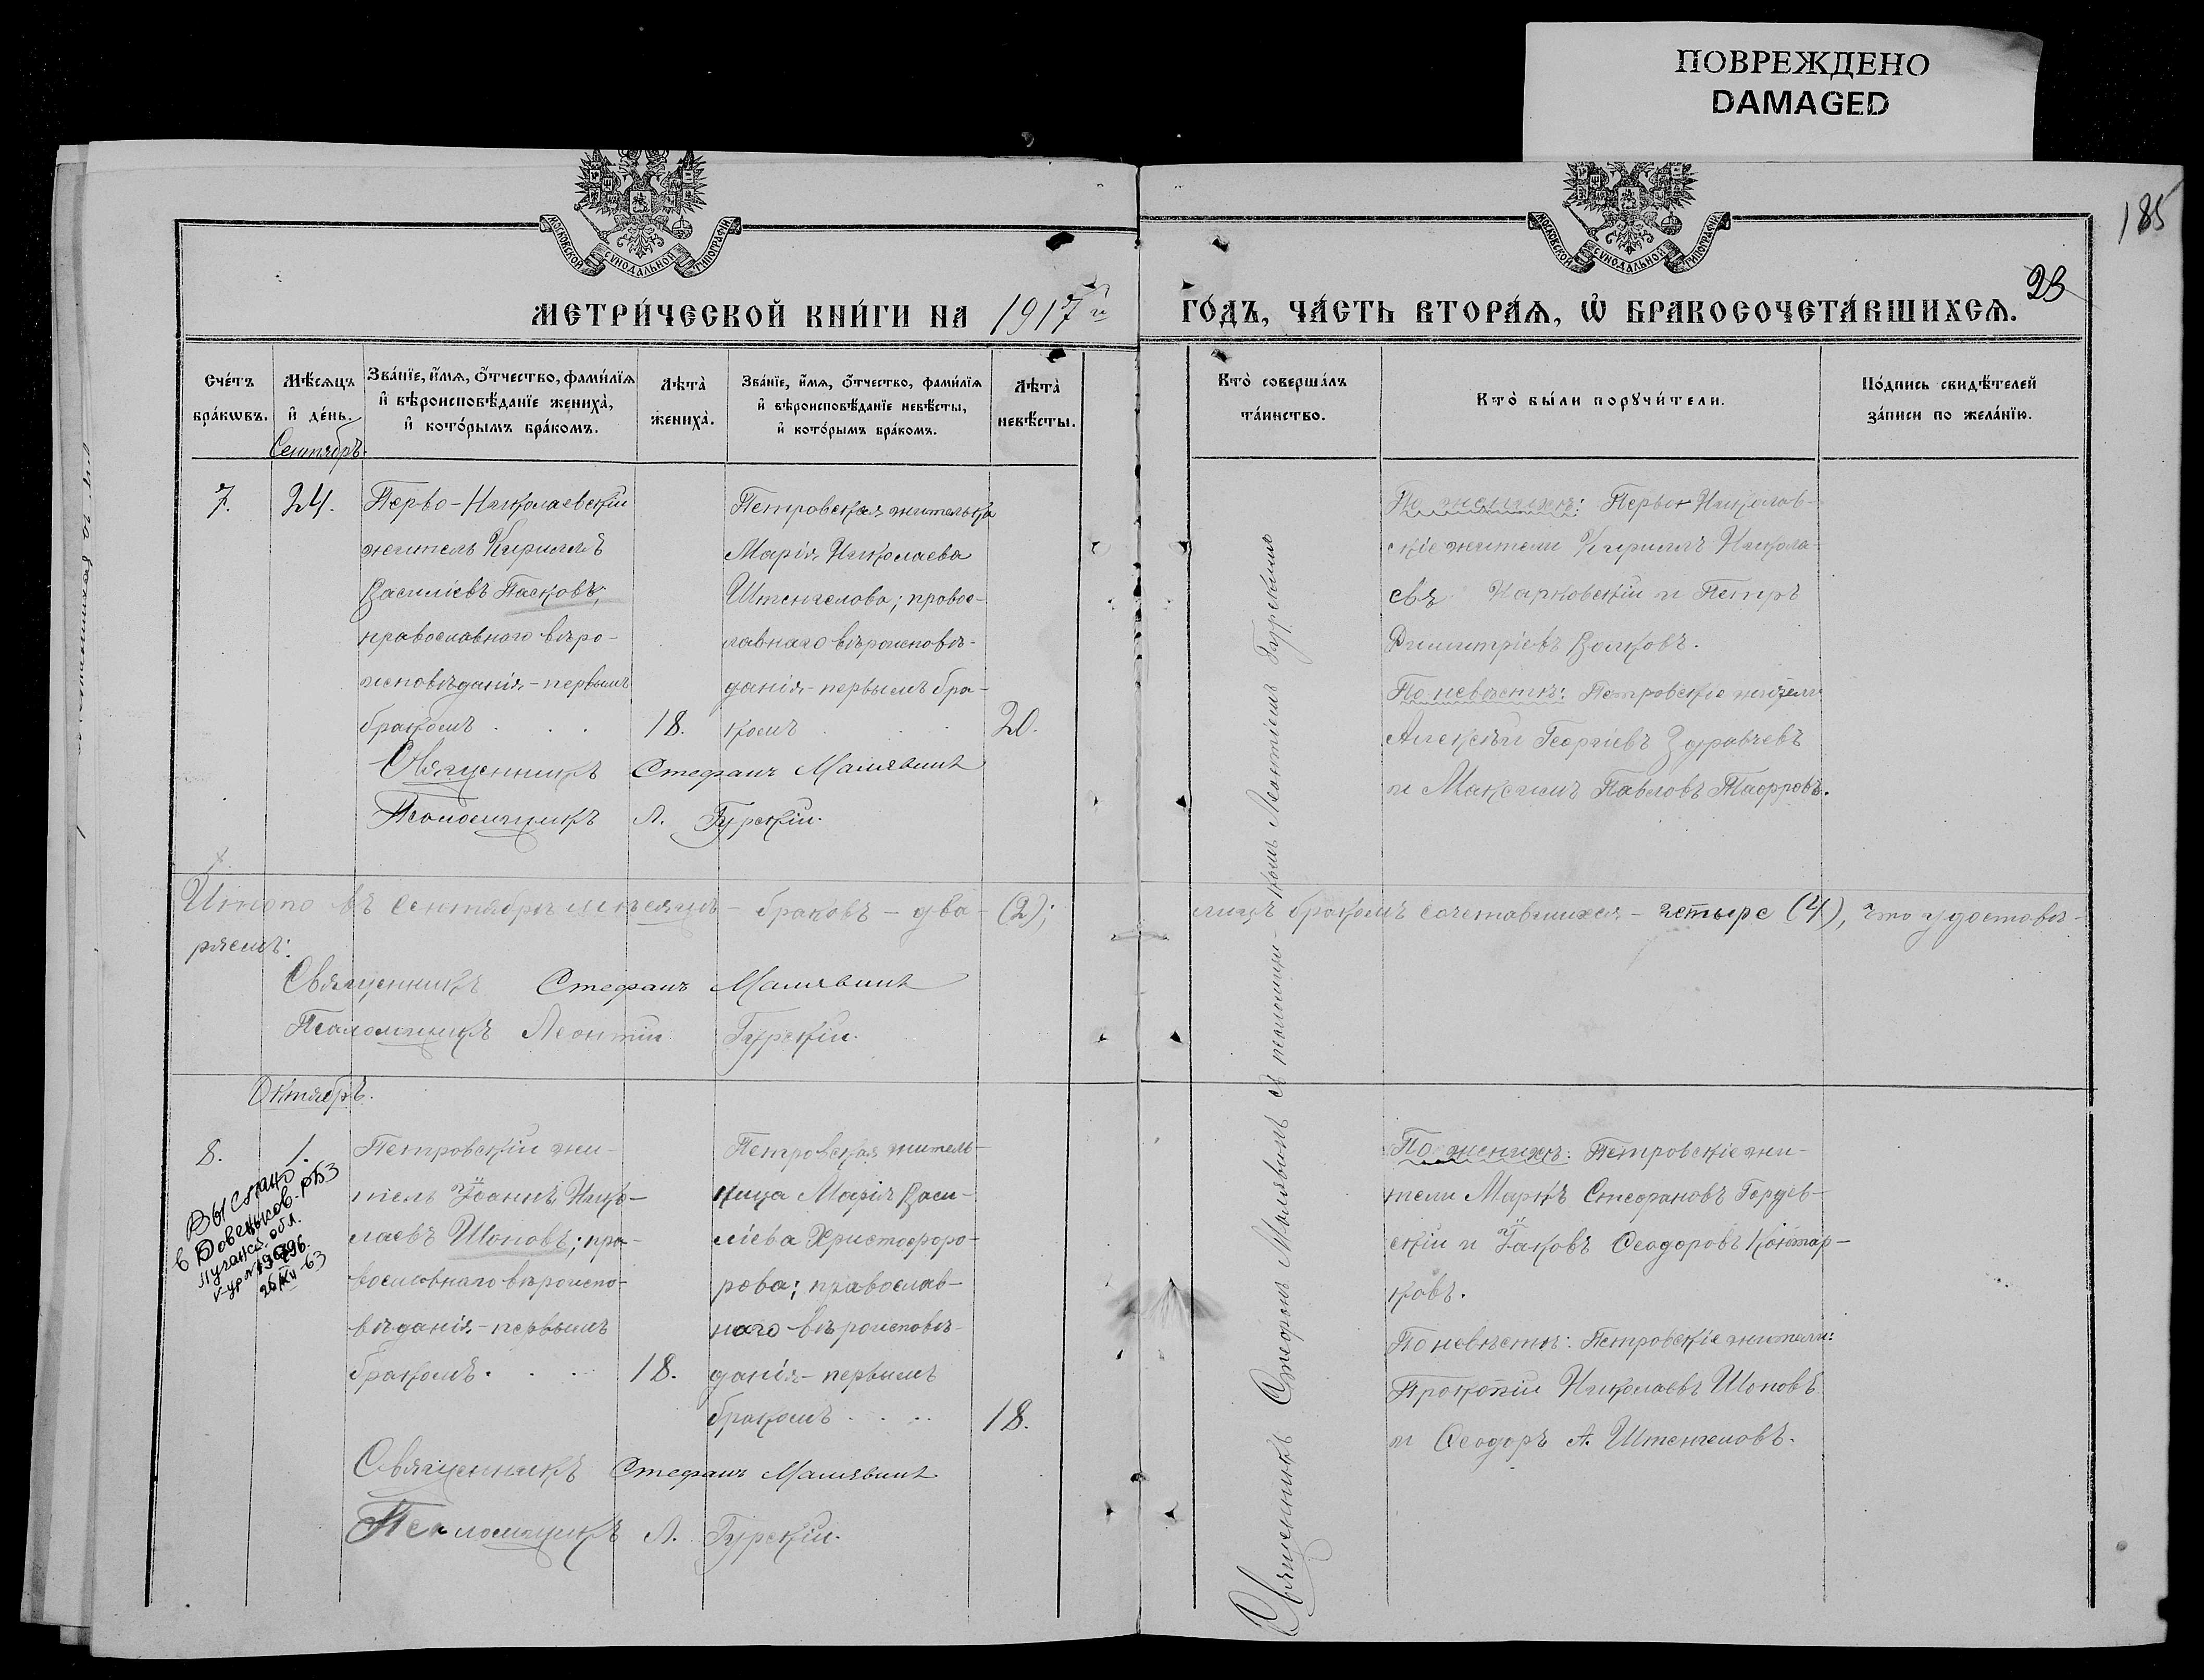 ПОВРЕЖДЕНО
DAMAGED
185
23
МОСКОВСКОЙ СѴНОДАЛЬНОЙ ТИПОГРАФІИ
МОСКОВСКОЙ СѴНОДАЛЬНОЙ ТИПОГРАФІИ
МЕТРИ́ЧЕСКОЙ КНИ́ГИ НА 1917й
ГО́ДЪ, ЧА́СТЬ ВТОРА́Ѧ, Ѡ҆ БРАКОСОЧЕТА́ВШИХСѦ.
Сче́тъ
бра́кѡвъ.
Мѣ́сѧцъ
и҆ де́нь.
Зва́нїе, и҆́мѧ, ѻ҆́тчество, фами́лїѧ
и҆ вѣроисповѣ́данїе жениха̀,
и҆ кото́рымъ бра́комъ.
Лѣта̀
жениха̀.
Зва́нїе, и҆́мѧ, ѻ҆́тчество, фами́лїѧ
и҆ вѣроисповѣ́данїе невѣ́сты,
и҆ кото́рымъ бра́комъ.
Лѣта̀
невѣ́сты.
Кто̀ соверша́лъ
та́инство.
Кто̀ бы́ли порꙋчи́тели.
По́дпись свидѣ́телей
за́писи по жела́нїю.
Сентябрь.
7.
24.
Перво-Николаевскій
житель Кириллъ
Василіевъ Пасковъ;
православнаго вѣро-
исповѣданія - первымъ
бракомъ . . .
18.
Петровская жителька
Марія Николаева
Штенгелова; правос-
лавнаго вѣроисповѣ-
данія - первымъ бра-
комъ . . .
20.
Священникъ Стефанъ Малявинъ
Псаломщикъ Л. Гурскій.
По женихѣ: Перво-Николаев-
скіе жители Кириллъ Никола-
евъ Харковскій и Петръ
Димитріевъ Волковъ.
По невѣстѣ: Петровскіе жители
Алексѣй Георгіевъ Здравчевъ
и Максимъ Павловъ
Итого въ Сентябрѣ мѣсяцѣ - браковъ - два - (2);
лицъ бракомъ сочетавшихся - четыре (4), что удостовѣ-
ряемъ:
Священникъ Стефанъ Малявинъ
Псаломщикъ Леонтій Гурскій.
Октябрь.
8.
1.
Выслано
в Бовеньков. рБЗ
Луганск. обл.
26/XII-63
Петровскій жи-
тель Іоаннъ Нико-
лаевъ Шоповъ; пра-
вославнаго вѣроиспо-
вѣданія - первымъ
бракомъ. . . .
18.
Петровская житель-
ница Марія Васи-
ліева Христофоро-
рова; православ-
наго вѣроисповѣ-
данія - первымъ
бракомъ . . .
18.
Священникъ Стефанъ Малявинъ
Псаломщикъ Л. Гурскій.
Священникъ Стефанъ Малявинъ съ псаломщи-комъ Леонтіемъ Гурскимъ
По женихѣ: Петровскіе жи-
тели Маркъ Стефановъ Гордев-
скій и Іаковъ Ѳеодоровъ
ковъ.
По невѣстѣ: Петровскіе жители:
Прокопій Николаевъ Шоповъ
и Ѳеодоръ А. Штенгеловъ.